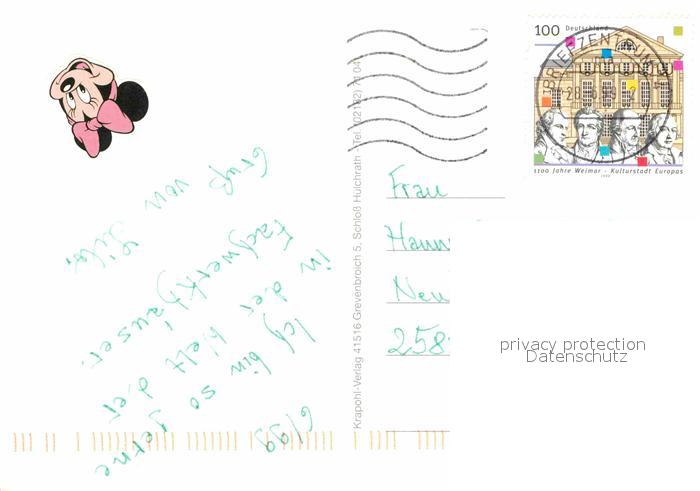 6/99
Ich bin so gerne
in der Welt der
Fachwerkhäuser.
Gruß von
Frau
Hann
Neu
258
Krapohl-Verlag 41516 Grevenbroich 5, Schloß Hülchrath - Tel. (02182)
100 Deutschland
BRIEFZENTRUM
1100 Jahre Weimar - Kulturstadt Europas
privacy protection
Datenschutz